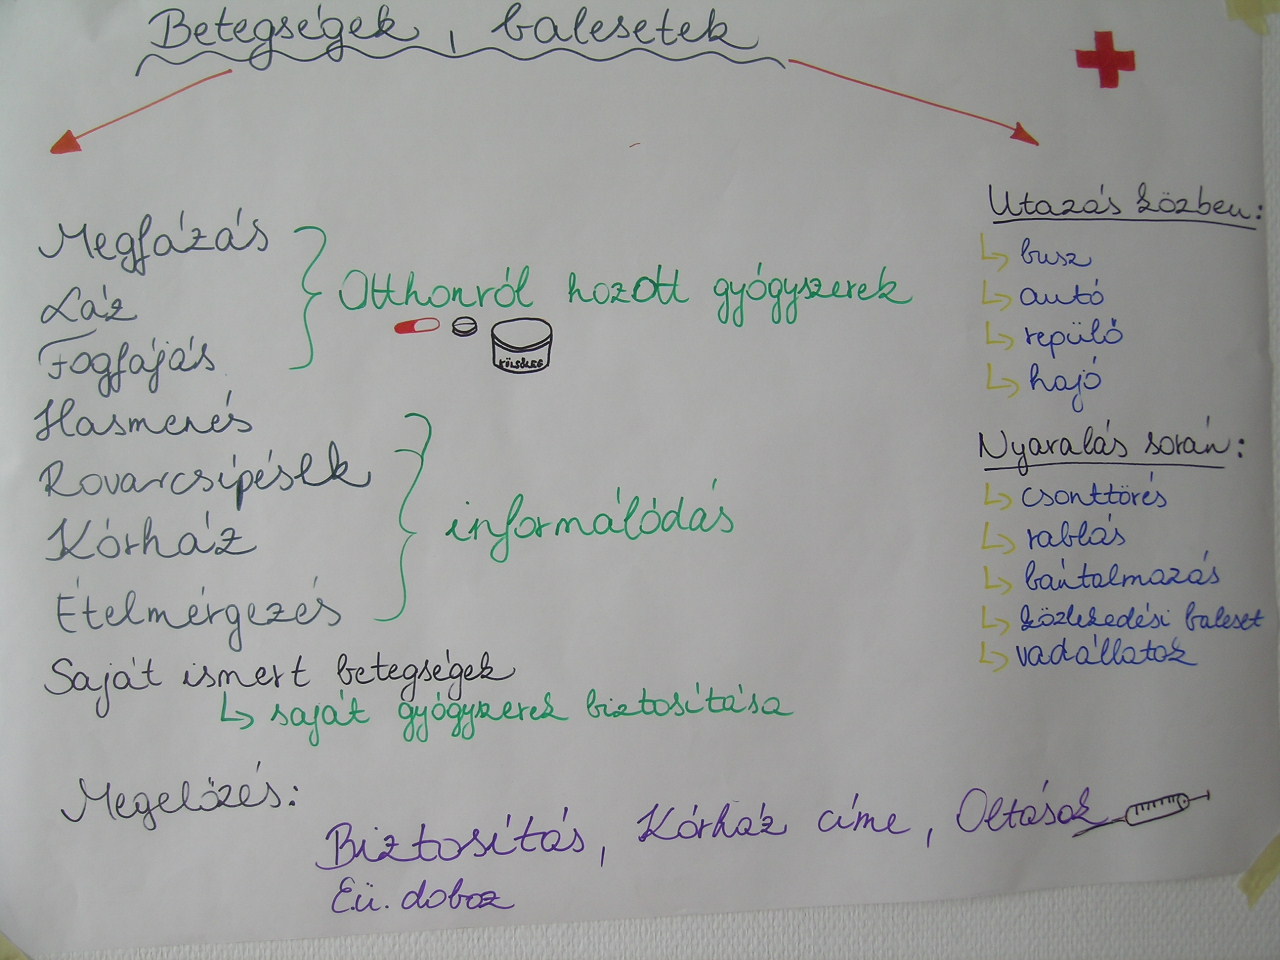 Betegségek, balesetek
Megfázás
Láz
Fogfájás
Otthonról hozott gyógyszerek
KÜLSŐLEG
Hasmenés
Rovarcsípések
Kórház
Ételmérgezés
informálódás
Saját ismert betegségek
saját gyógyszerek biztosítása
Utazás közben:
busz
autó
repülő
hajó
Nyaralás során:
csonttörés
rablás
bántalmazás
közlekedési baleset
vadállatok
Megelőzés:
Biztosítás, Kórház címe, Oltások
E.ü. doboz